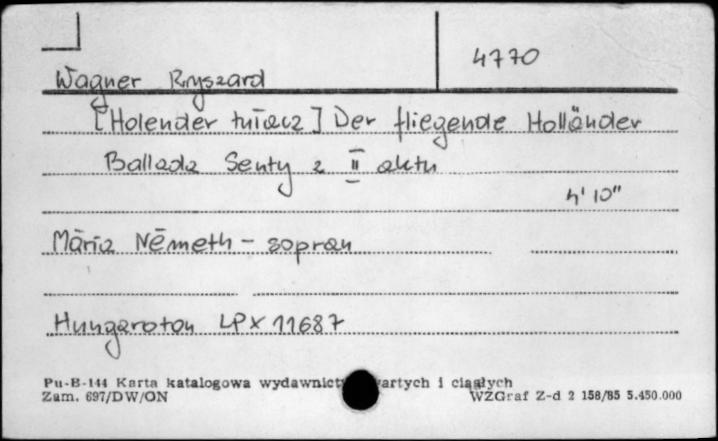 4770
Wagner Ryszard
[Holender tułacz] Der fliegende Holländer
Ballada Senty z II aktu
4'10"
Mária Németh - sopran
Hungaroton LPX 11687
Pu-B-144 Karta katalogowa wydawnict artych i ciągłych
Zam. 697/DW/ON WZGraf Z-d 2 158/85 5.450.000